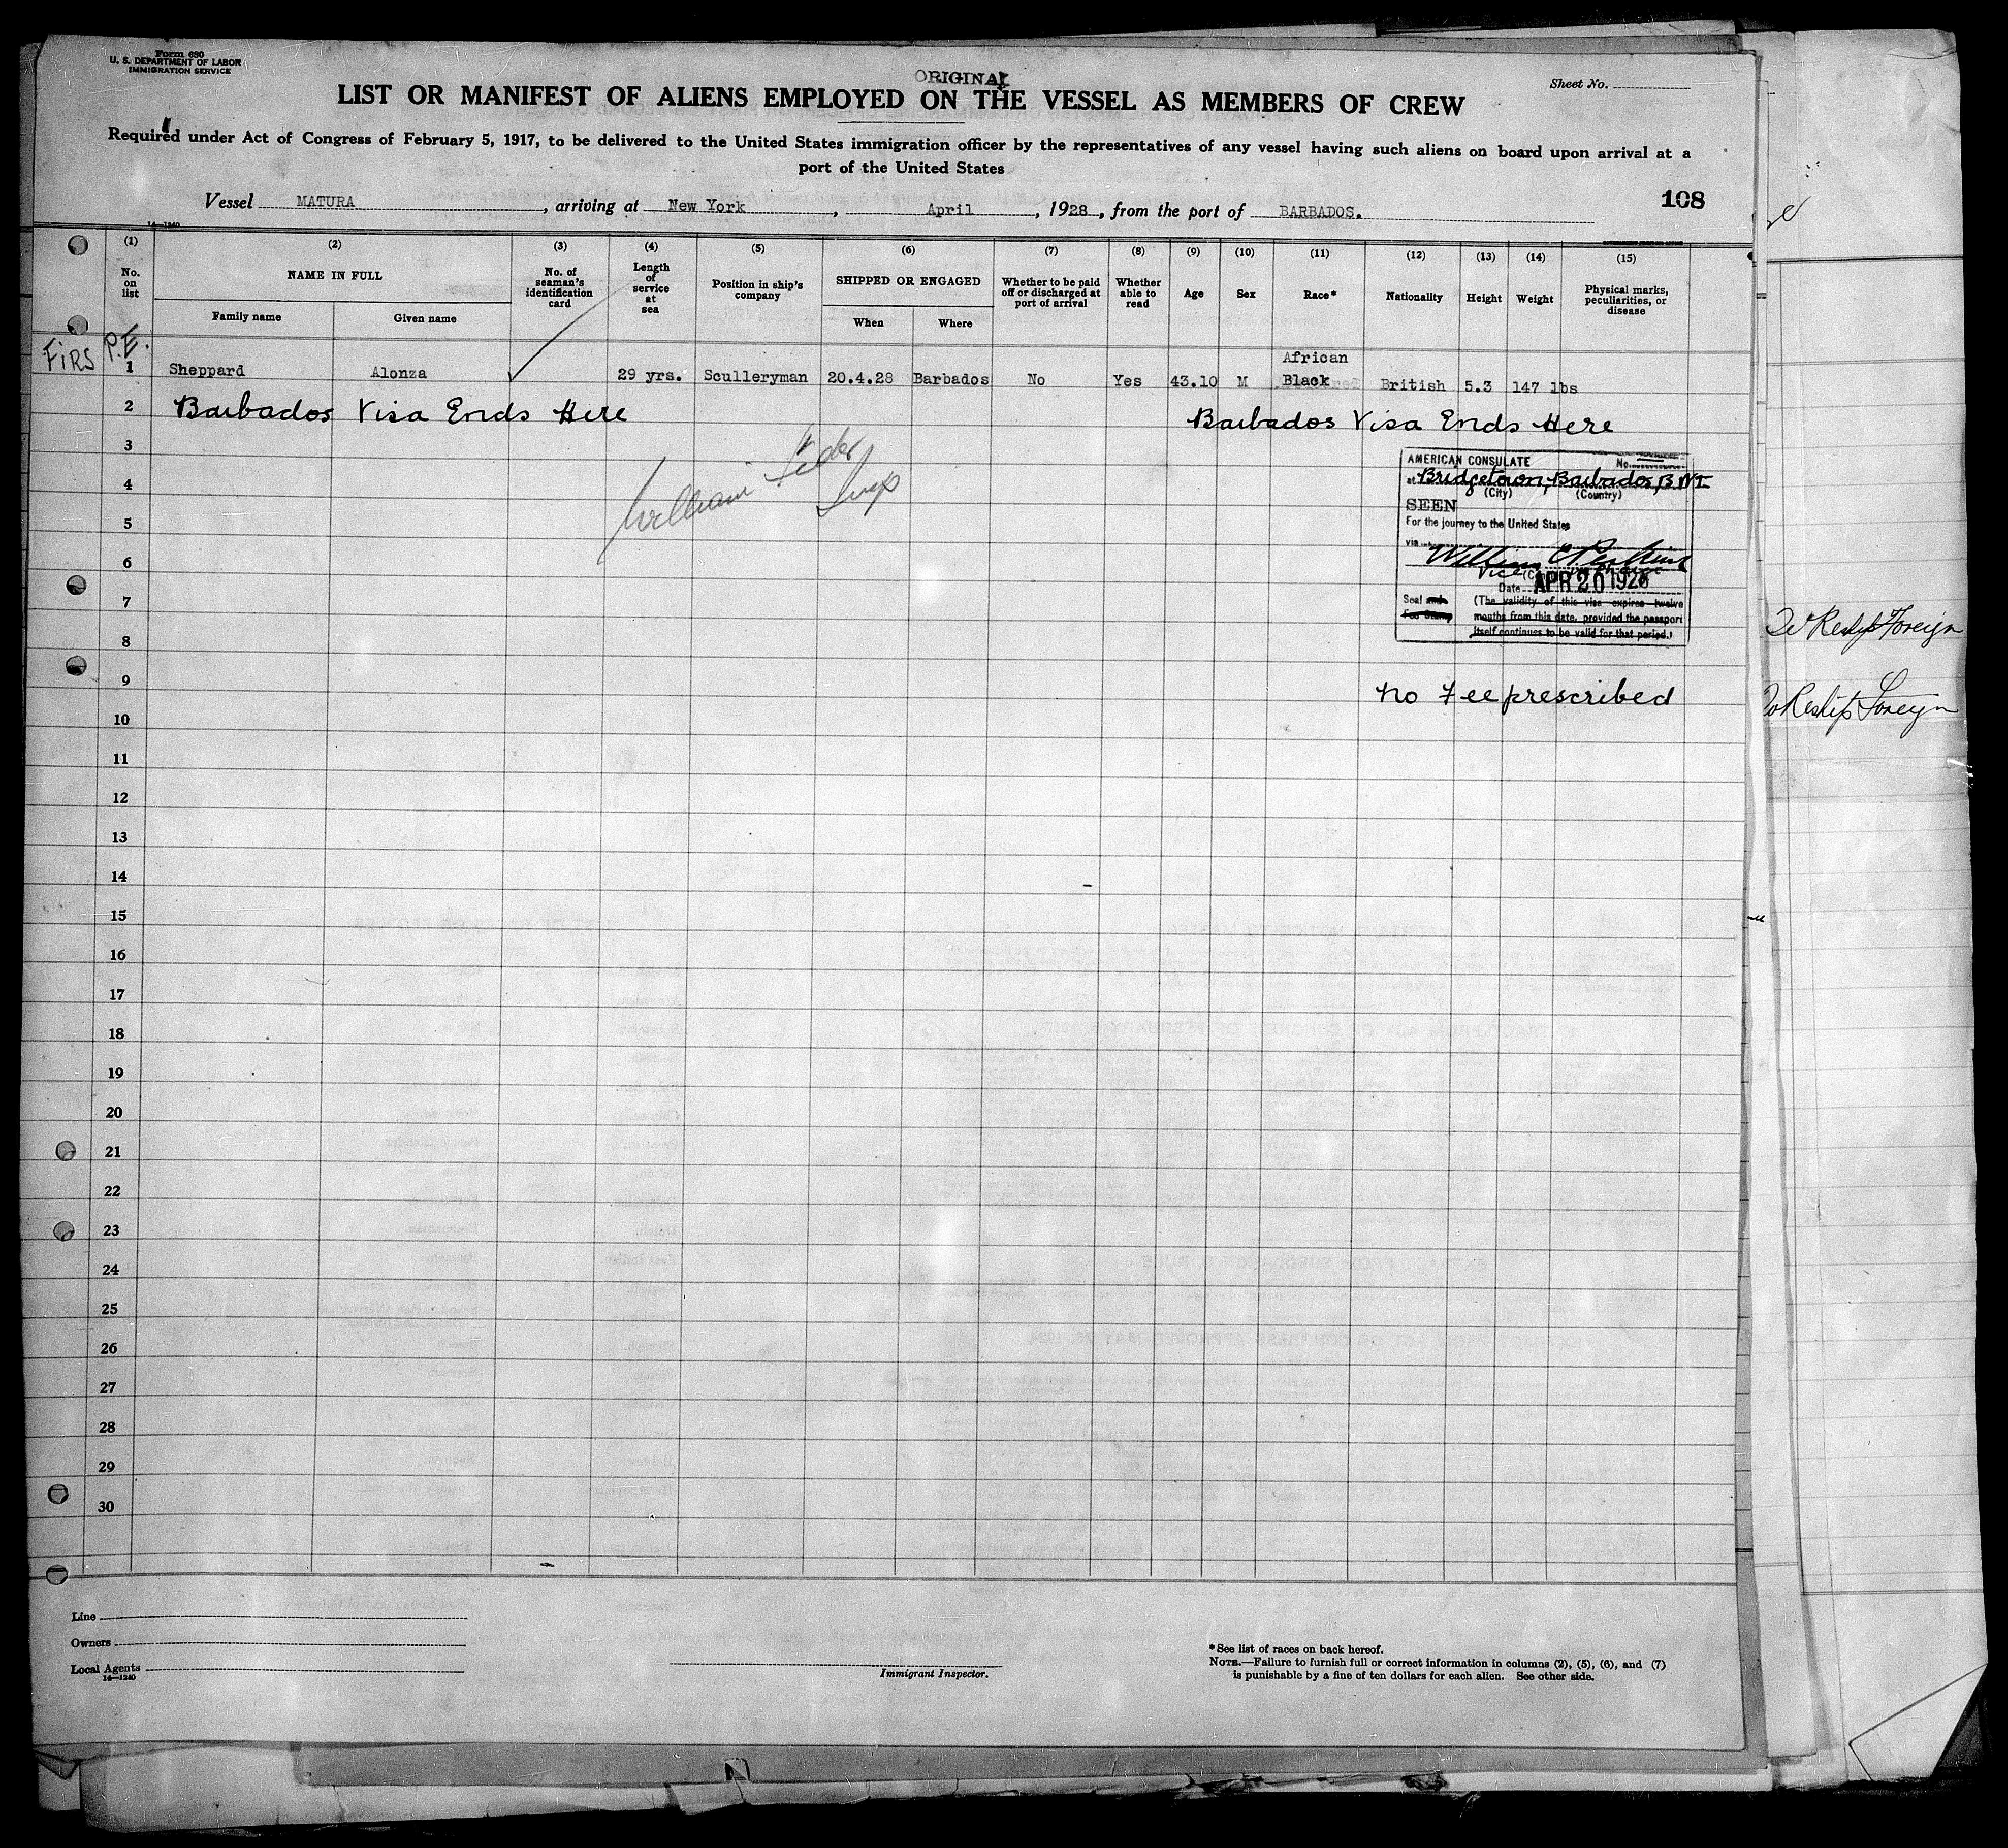 Form 680
U. S. DEPARTMENT OF LABOR
IMMIGRATION SERVICE
ORIGINAL
Sheet No.
LIST OR MANIFEST OF ALIENS EMPLOYED ON THE VESSEL AS MEMBERS OF CREW
Required under Act of Congress of February 5, 1917, to be delivered to the United States immigration officer by the representatives of any vessel having such aliens on board upon arrival at a
port of the United States
Vessel MATURA, arriving at New York, April, 1928, from the port of BARBADOS.
108
14—1240
(1) (2) (3) (4) (5) (6) (7) (8) (9) (10) (11) (12) (13) (14) (15)
No. on list
NAME IN FULL
Family name
Given name
No. of seaman's identification card
Length of service at sea
Position in ship's company
SHIPPED OR ENGAGED
When
Where
Whether to be paid off or discharged at port of arrival
Whether able to read
Age
Sex
Race*
Nationality
Height
Weight
Physical marks, peculiarities, or disease
FIRS P.E.
African
1 Sheppard Alonza 29 yrs. Sculleryman 20.4.28 Barbados No Yes 43.10 M Black British 5.3 147 lbs
2 Barbados Visa Ends Here Barbados Visa Ends Here
3
4
5
6
7
8
9
10
11
12
13
14
15
16
17
18
19
20
21
22
23
24
25
26
27
28
29
30
William
AMERICAN CONSULATE No.
at Bridgetown, Barbados, B.W.I
(City) (Country)
SEEN
For the journey to the United States
via
William
Vice
Date APR 20 1928
Seal and Fee Stamp
(The validity of this visa expires twelve
months from this date, provided the passport
itself continues to be valid for that period.)
No Fee prescribed
To Reship Foreign
To Reship Foreign
Line
Owners
Local Agents
14—1240
Immigrant Inspector.
*See list of races on back hereof.
NOTE.—Failure to furnish full or correct information in columns (2), (5), (6), and (7)
is punishable by a fine of ten dollars for each alien. See other side.